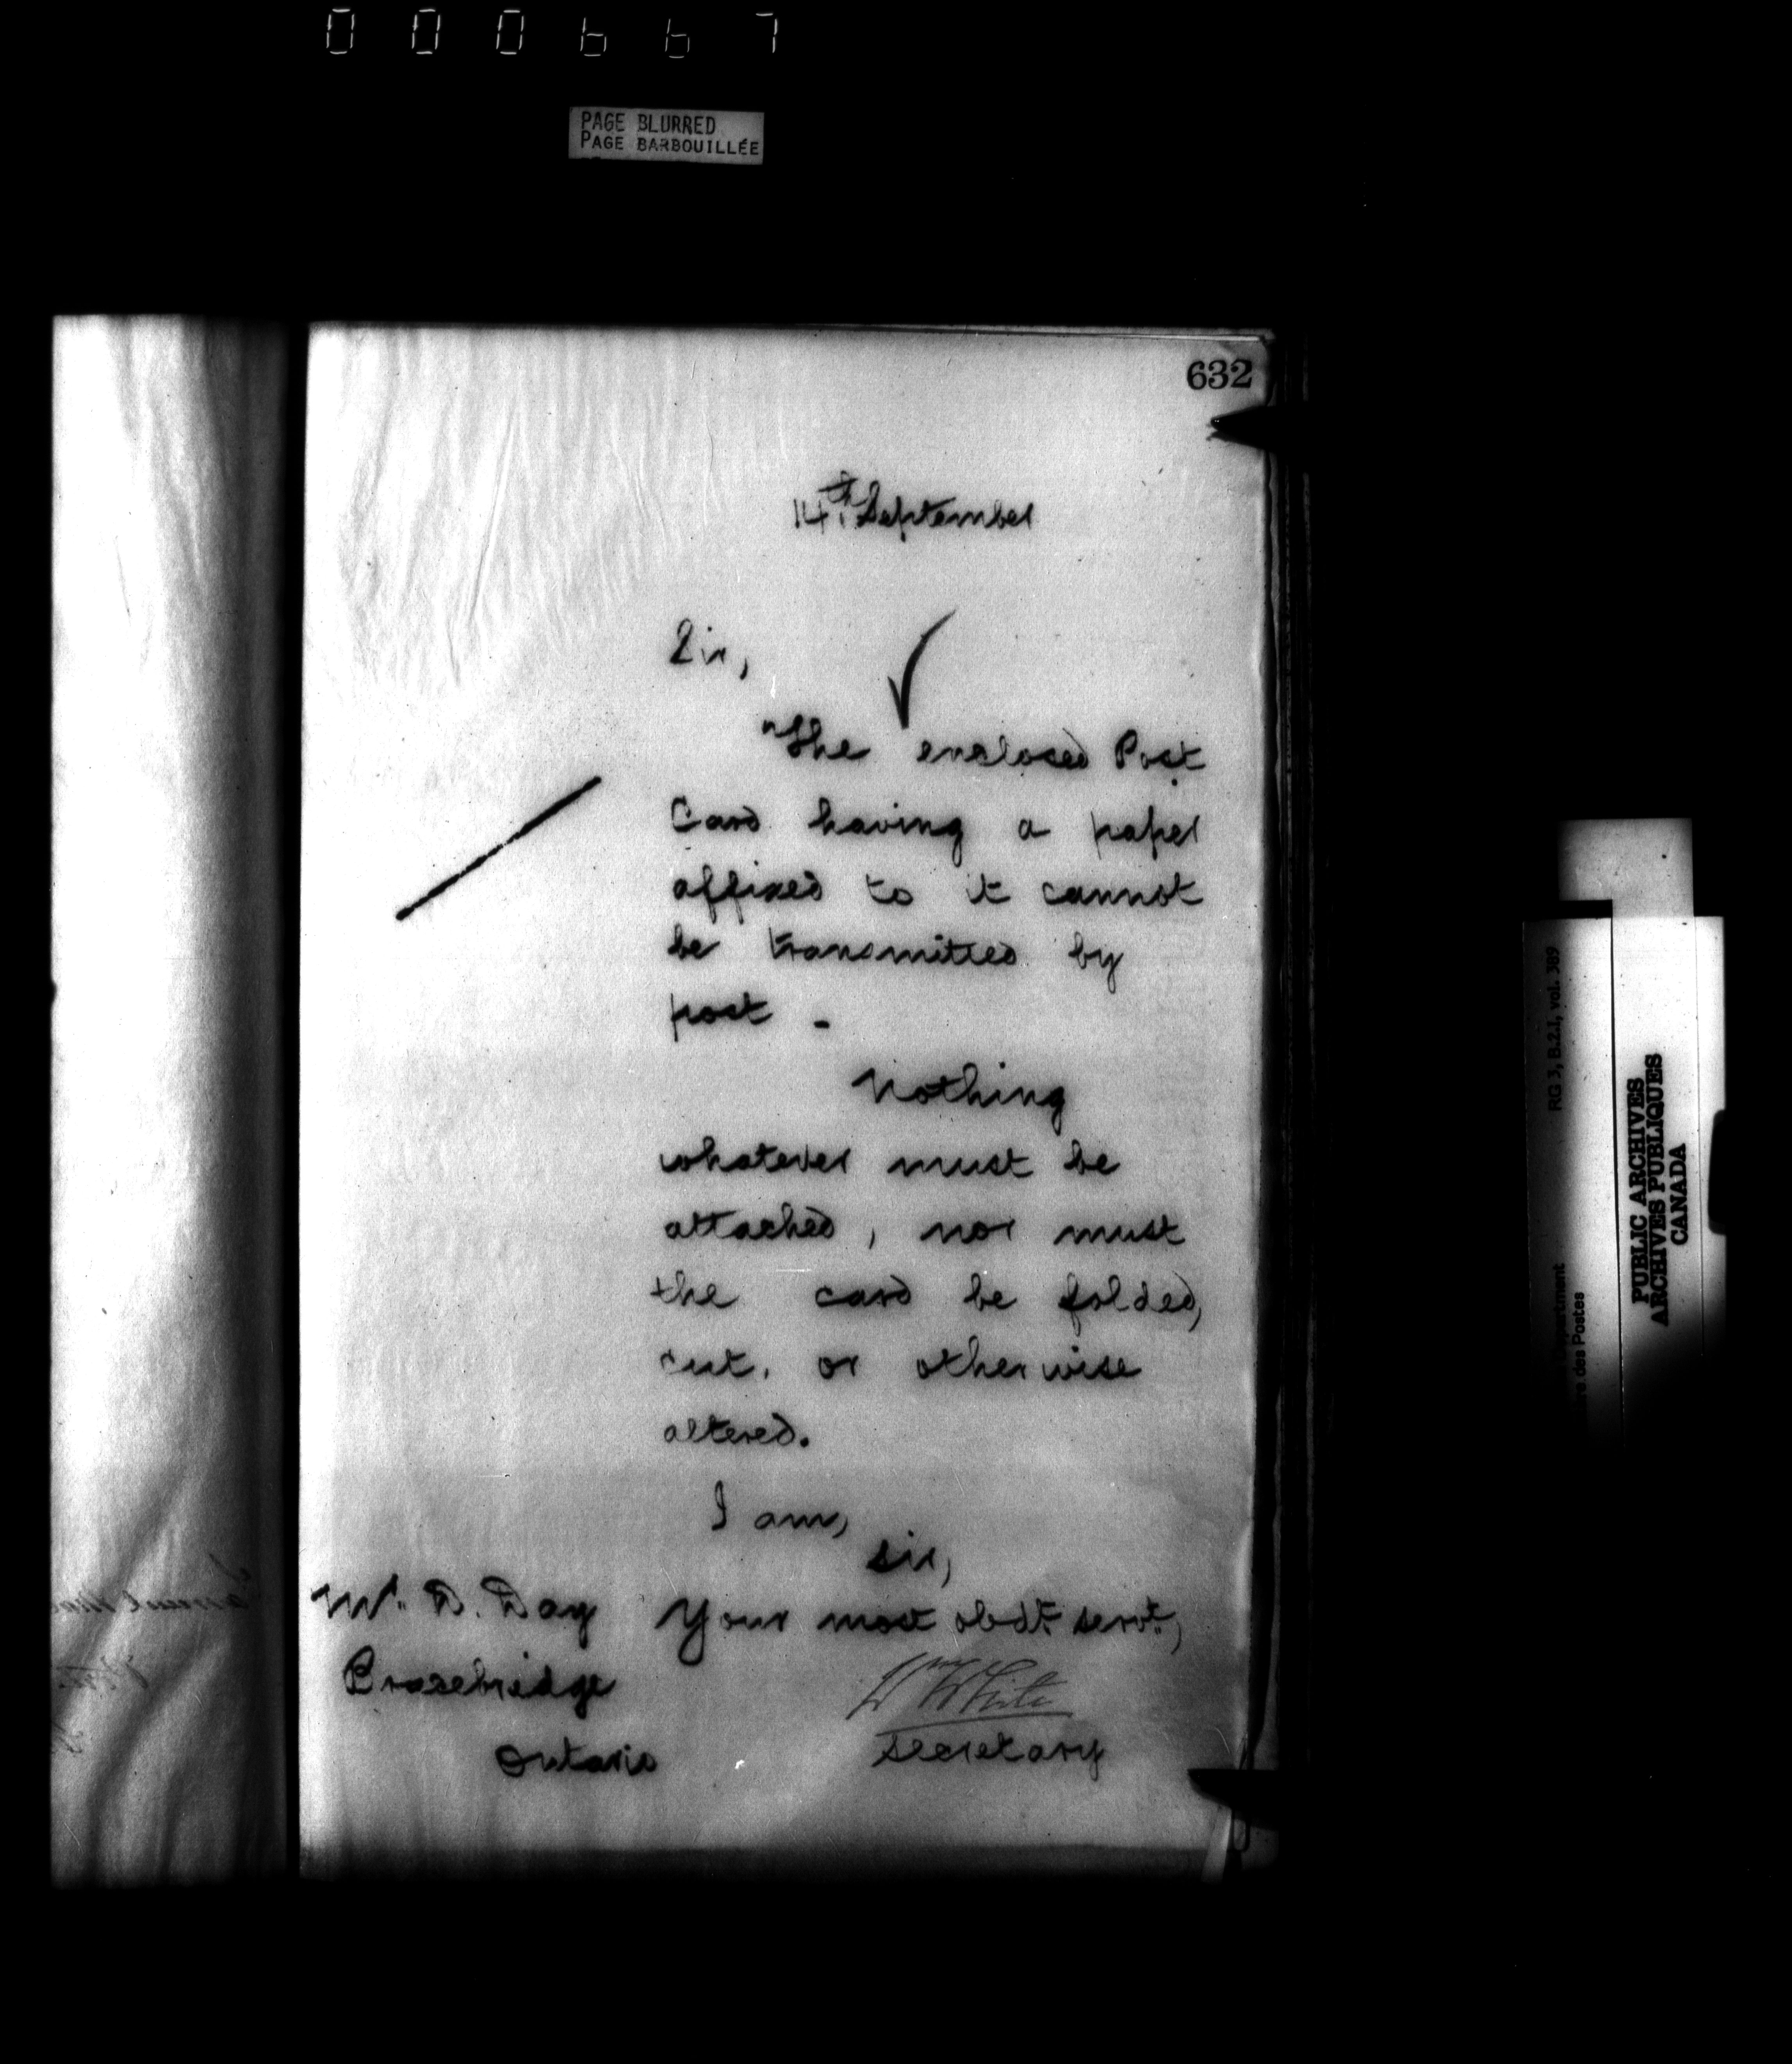 000667
PAGE BLURRED
PAGE BARBOUILLÉE
632
14th September
Sir,
The enclosed Post
Card having a paper
affixed to it cannot
be transmitted by
post -
Nothing
whatever must be
attached, nor must
the card be folded,
cut, or otherwise
altered.
I am,
Sir,
Your most obdt. servt.,
Wm White
Secretary
Mr. D. Day
Bracebridge
Ontario
RG 3, B.2.1, vol. 389
PUBLIC ARCHIVES
ARCHIVES PUBLIQUES
CANADA
des Postes